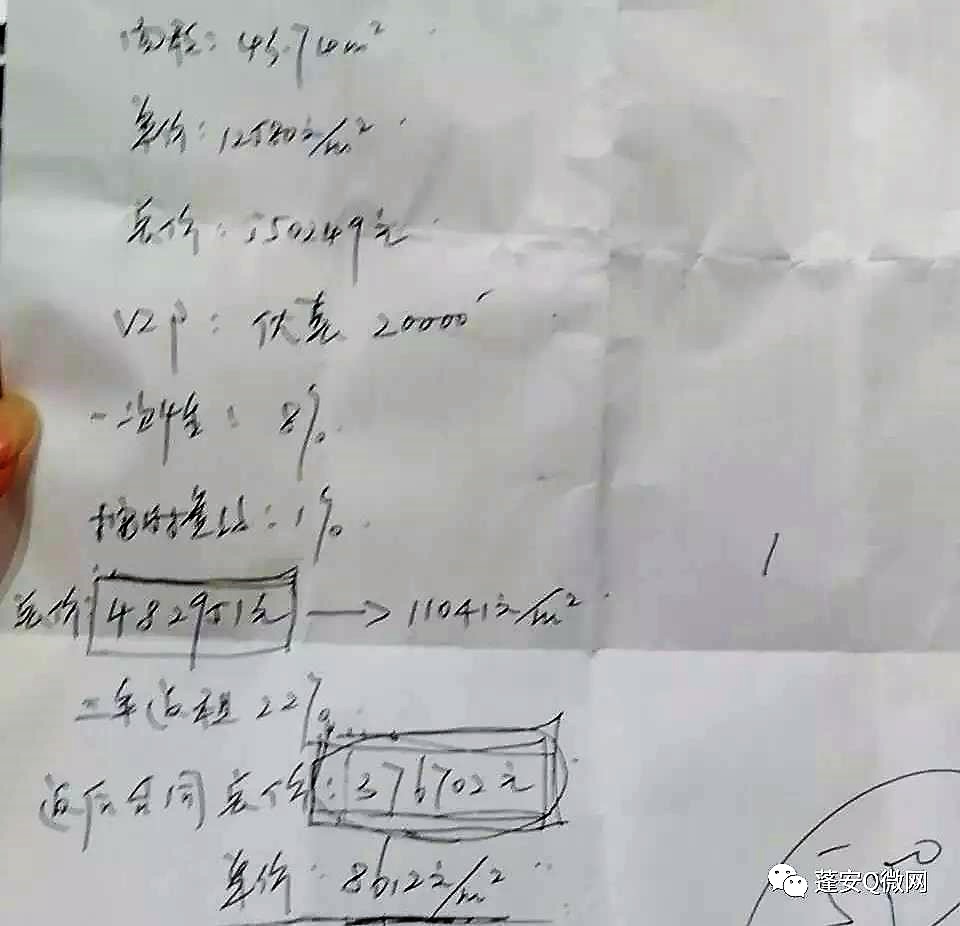 面积：43.74m²
单价：12580元/m²
总价：550249元
VIP：优惠 20000
一次性：8%
按时签约：1%
总价：482951元 → 11041元/m²
三年返租 22%
返后合同总价：376702元
单价：8612元/m²
蓬安Q微网